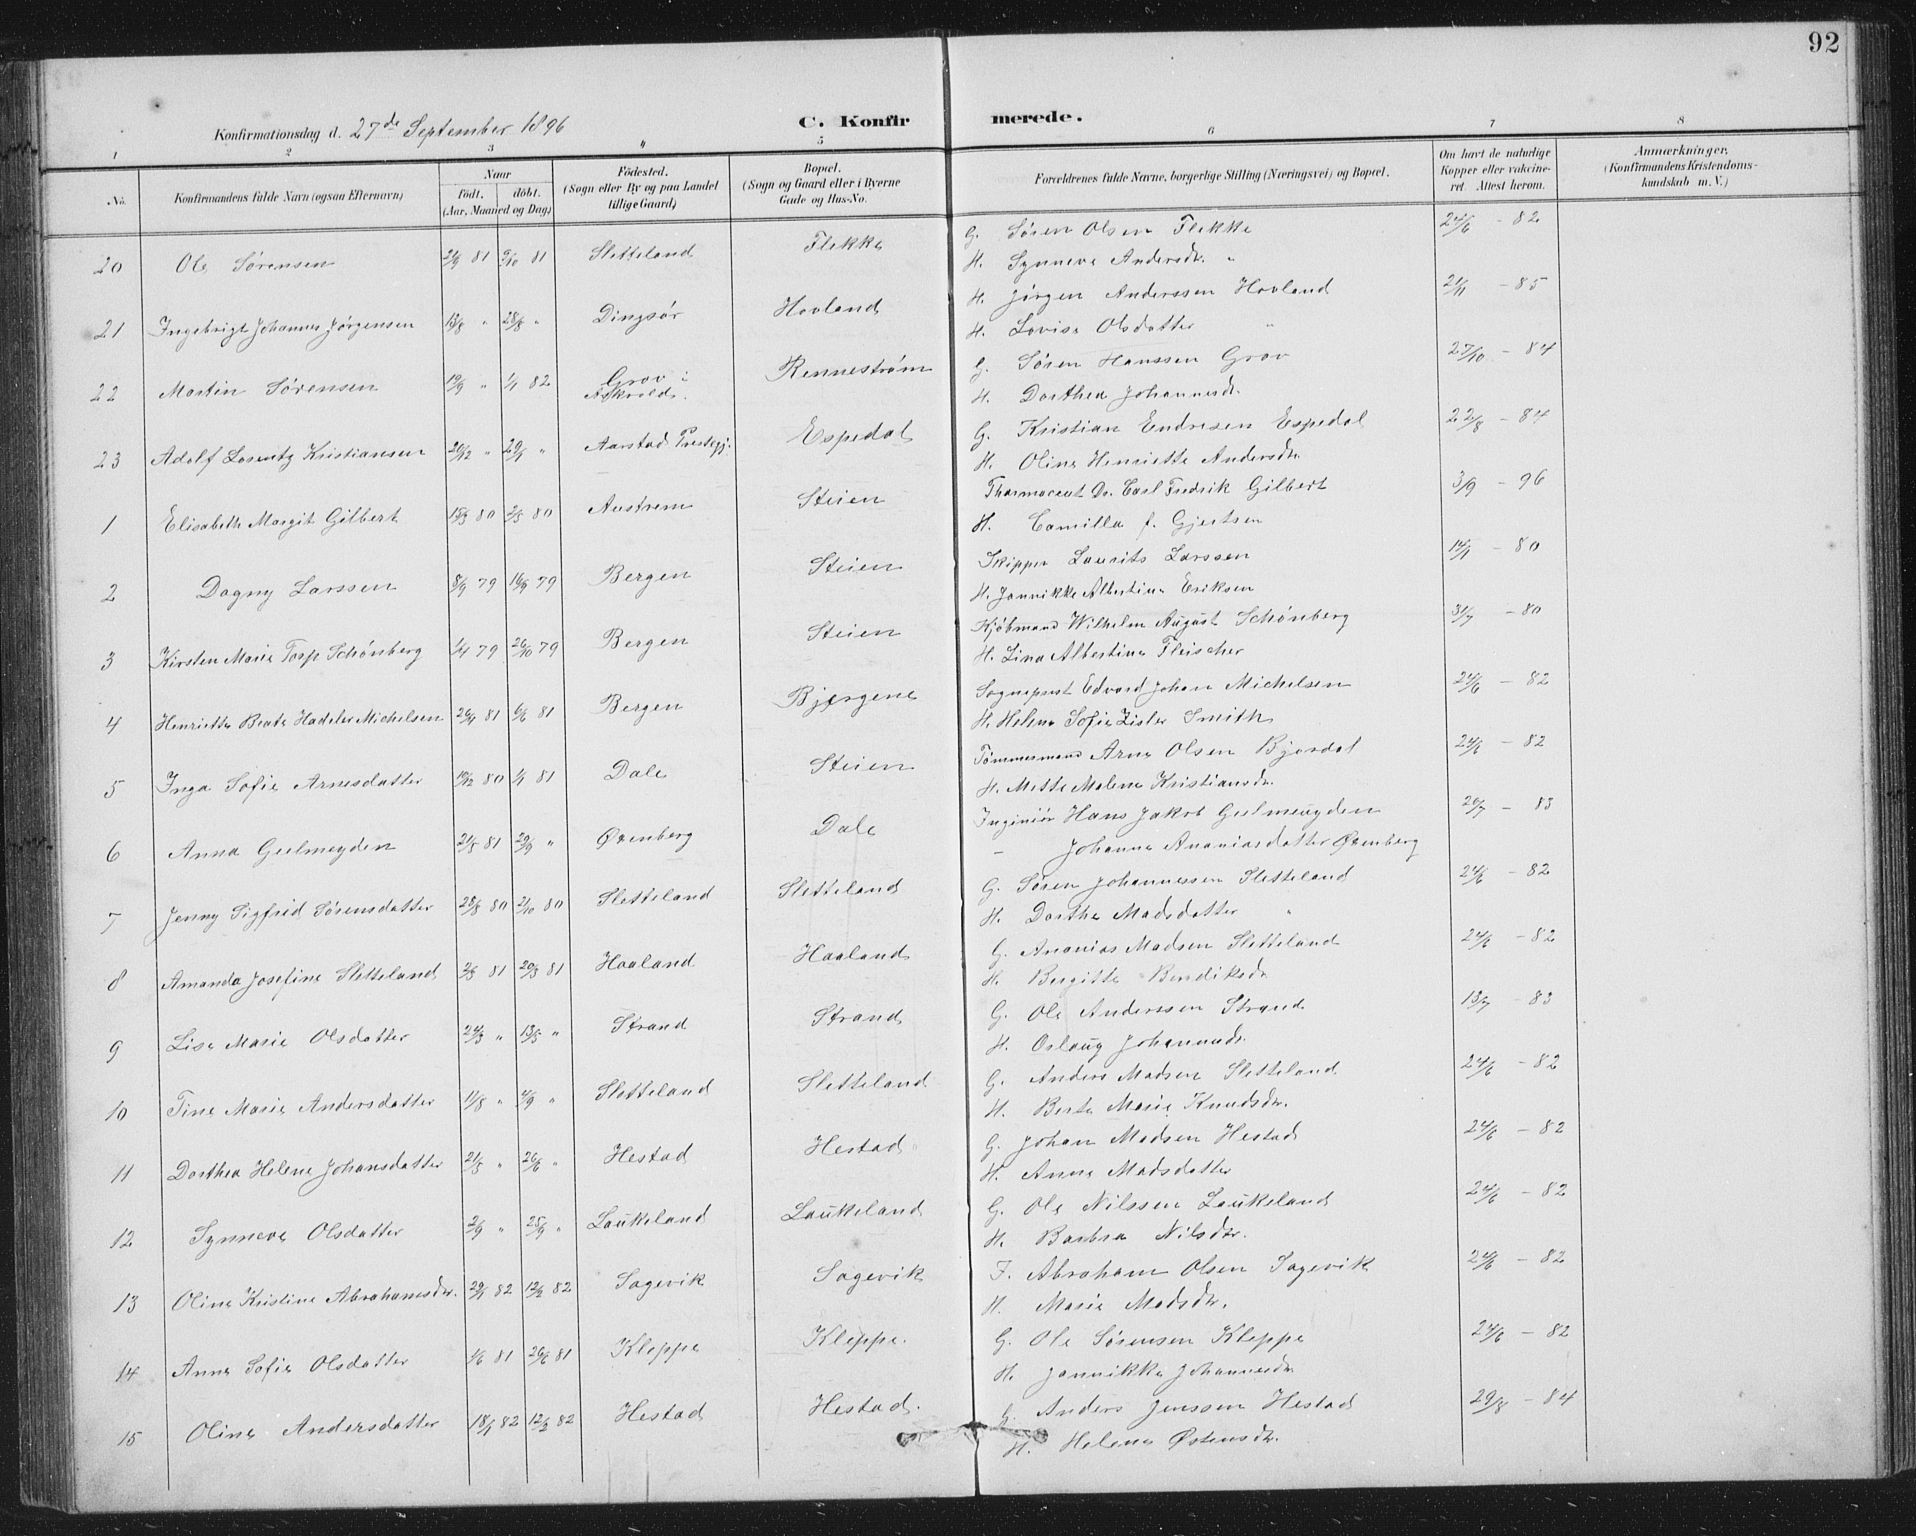 92
Konfirmationsdag d. 27de September 1896 C. Konfirmerede.
1 2 3 4 5 6 7 8
No. Konfirmandens fulde Navn (ogsaa Efternavn) Naar født. døbt. (Aar, Maaned og Dag) Fødested. (Sogn eller By og paa Landet tillige Gaard) Bopæl. (Sogn og Gaard eller i Byerne Gade og Hus-No. Forældrenes fulde Navne, borgerlige Stilling (Næringsvei) og Bopæl. Om havt de naturlige Kopper eller vakcineret. Attest herom. Anmærkninger. (Konfirmandens Kristendomskundskab m. V.)
20 Ole Sørensen 81 9/10 81 Sletteland Flekke G. Søren Olsen Flekke 24/6 - 82
H. Synneve Andersdr. "
21 Ingebrigt Johannes Jørgensen 13/8 " 28/8 " Dingsør Hovland H. Jørgen Anderssen Hovland 21/11 - 85
H. Lovise Olsdatter "
22 Martin Sørensen 19/9 " 1/1 82 Grov i Askvold. Rennestrøm G. Søren Hanssen Grov 27/10 - 84
H. Dorthea Johannesdr.
23 Adolf Lorentz Kristiansen 26/12 " 29/1 " Aarstad Prestegj. Espedal G. Kristian Endresen Espedal 22/8 - 84
H. Oline Henriette Andersdr.
1 Elisabeth Margit Gilbert 15/3 80 2/5 80 Austrem Steien Farmaceut Dr. Carl Fredrik Gilbert 3/9 - 96
H. Camilla f. Gjertsen
2 Dagny Larssen 8/9 79 16/9 79 Bergen Steien Skipper Laurits Larssen 14/1 - 80
H. Jannikke Albertine Eriksen
3 Kirsten Marie Torp Schönberg 1/4 79 26/10 79 Bergen Steien Kjøbmand Wilhelm August Schönberg 31/7 - 80
H. Lina Albertine Fleischer
4 Henriette Beate Hadeler Michelsen 26/4 81 6/6 81 Bergen Bjergene Sogneprest Edvard Johan Michelsen 24/6 - 82
H. Helene Sofie Zisler Smith
5 Inga Sofie Arnesdatter 19/12 80 1/1 81 Dale Steien Tømmermand Arne Olsen Bjordal 24/6 - 82
H. Mette Malene Kristiansdr.
6 Anna Geelmeyden 21/5 81 29/9 " Øxenberg Dale Ingeniør Hans Jakob Geelmeyden 20/7 - 83
- Johanne Ananiasdatter Øxenberg
7 Jenny Sigfrid Sørensdatter 28/8 80 2/10 80 Sletteland Sletteland G. Søren Johannessen Sletteland 24/6 - 82
H. Dorthe Madsdatter "
8 Amanda Josefine Sletteland 2/3 81 20/3 81 Haaland Haaland G. Ananias Madsen Sletteland 24/6 - 82
H. Bergitte Bendiksdr.
9 Lise Marie Olsdatter 24/3 " 13/5 " Strand Strand G. Ole Anderssen Strand 13/7 - 83
H. Oslaug Johannesdr.
10 Tine Marie Andersdatter 11/8 " 4/9 " Sletteland Sletteland G. Anders Madsen Sletteland 24/6 - 82
H. Berte Marie Knudsdr.
11 Dorthea Helene Johansdatter 21/5 " 26/6 " Hestad Hestad G. Johan Madsen Hestad 24/6 - 82
H. Anne Madsdatter
12 Synneve Olsdatter 2/9 " 25/9 " Laukeland Laukeland G. Ole Nilssen Laukeland 24/6 - 82
H. Barbra Nilsdr.
13 Oline Kristine Abrahamsdr. 29/1 82 12/2 82 Sagevik Sagevik F. Abraham Olsen Sagevik 24/6 - 82
H. Marie Madsdr.
14 Anne Sofie Olsdatter 1/6 81 26/6 81 Kleppe Kleppe. G. Ole Sørensen Kleppe 24/6 - 82
H. Jannikke Johannesdr
15 Oline Andersdatter 18/1 82 12/2 82 Hestad Hestad. G. Anders Jenssen Hestad 29/8 - 84
H. Helene Østensdr.